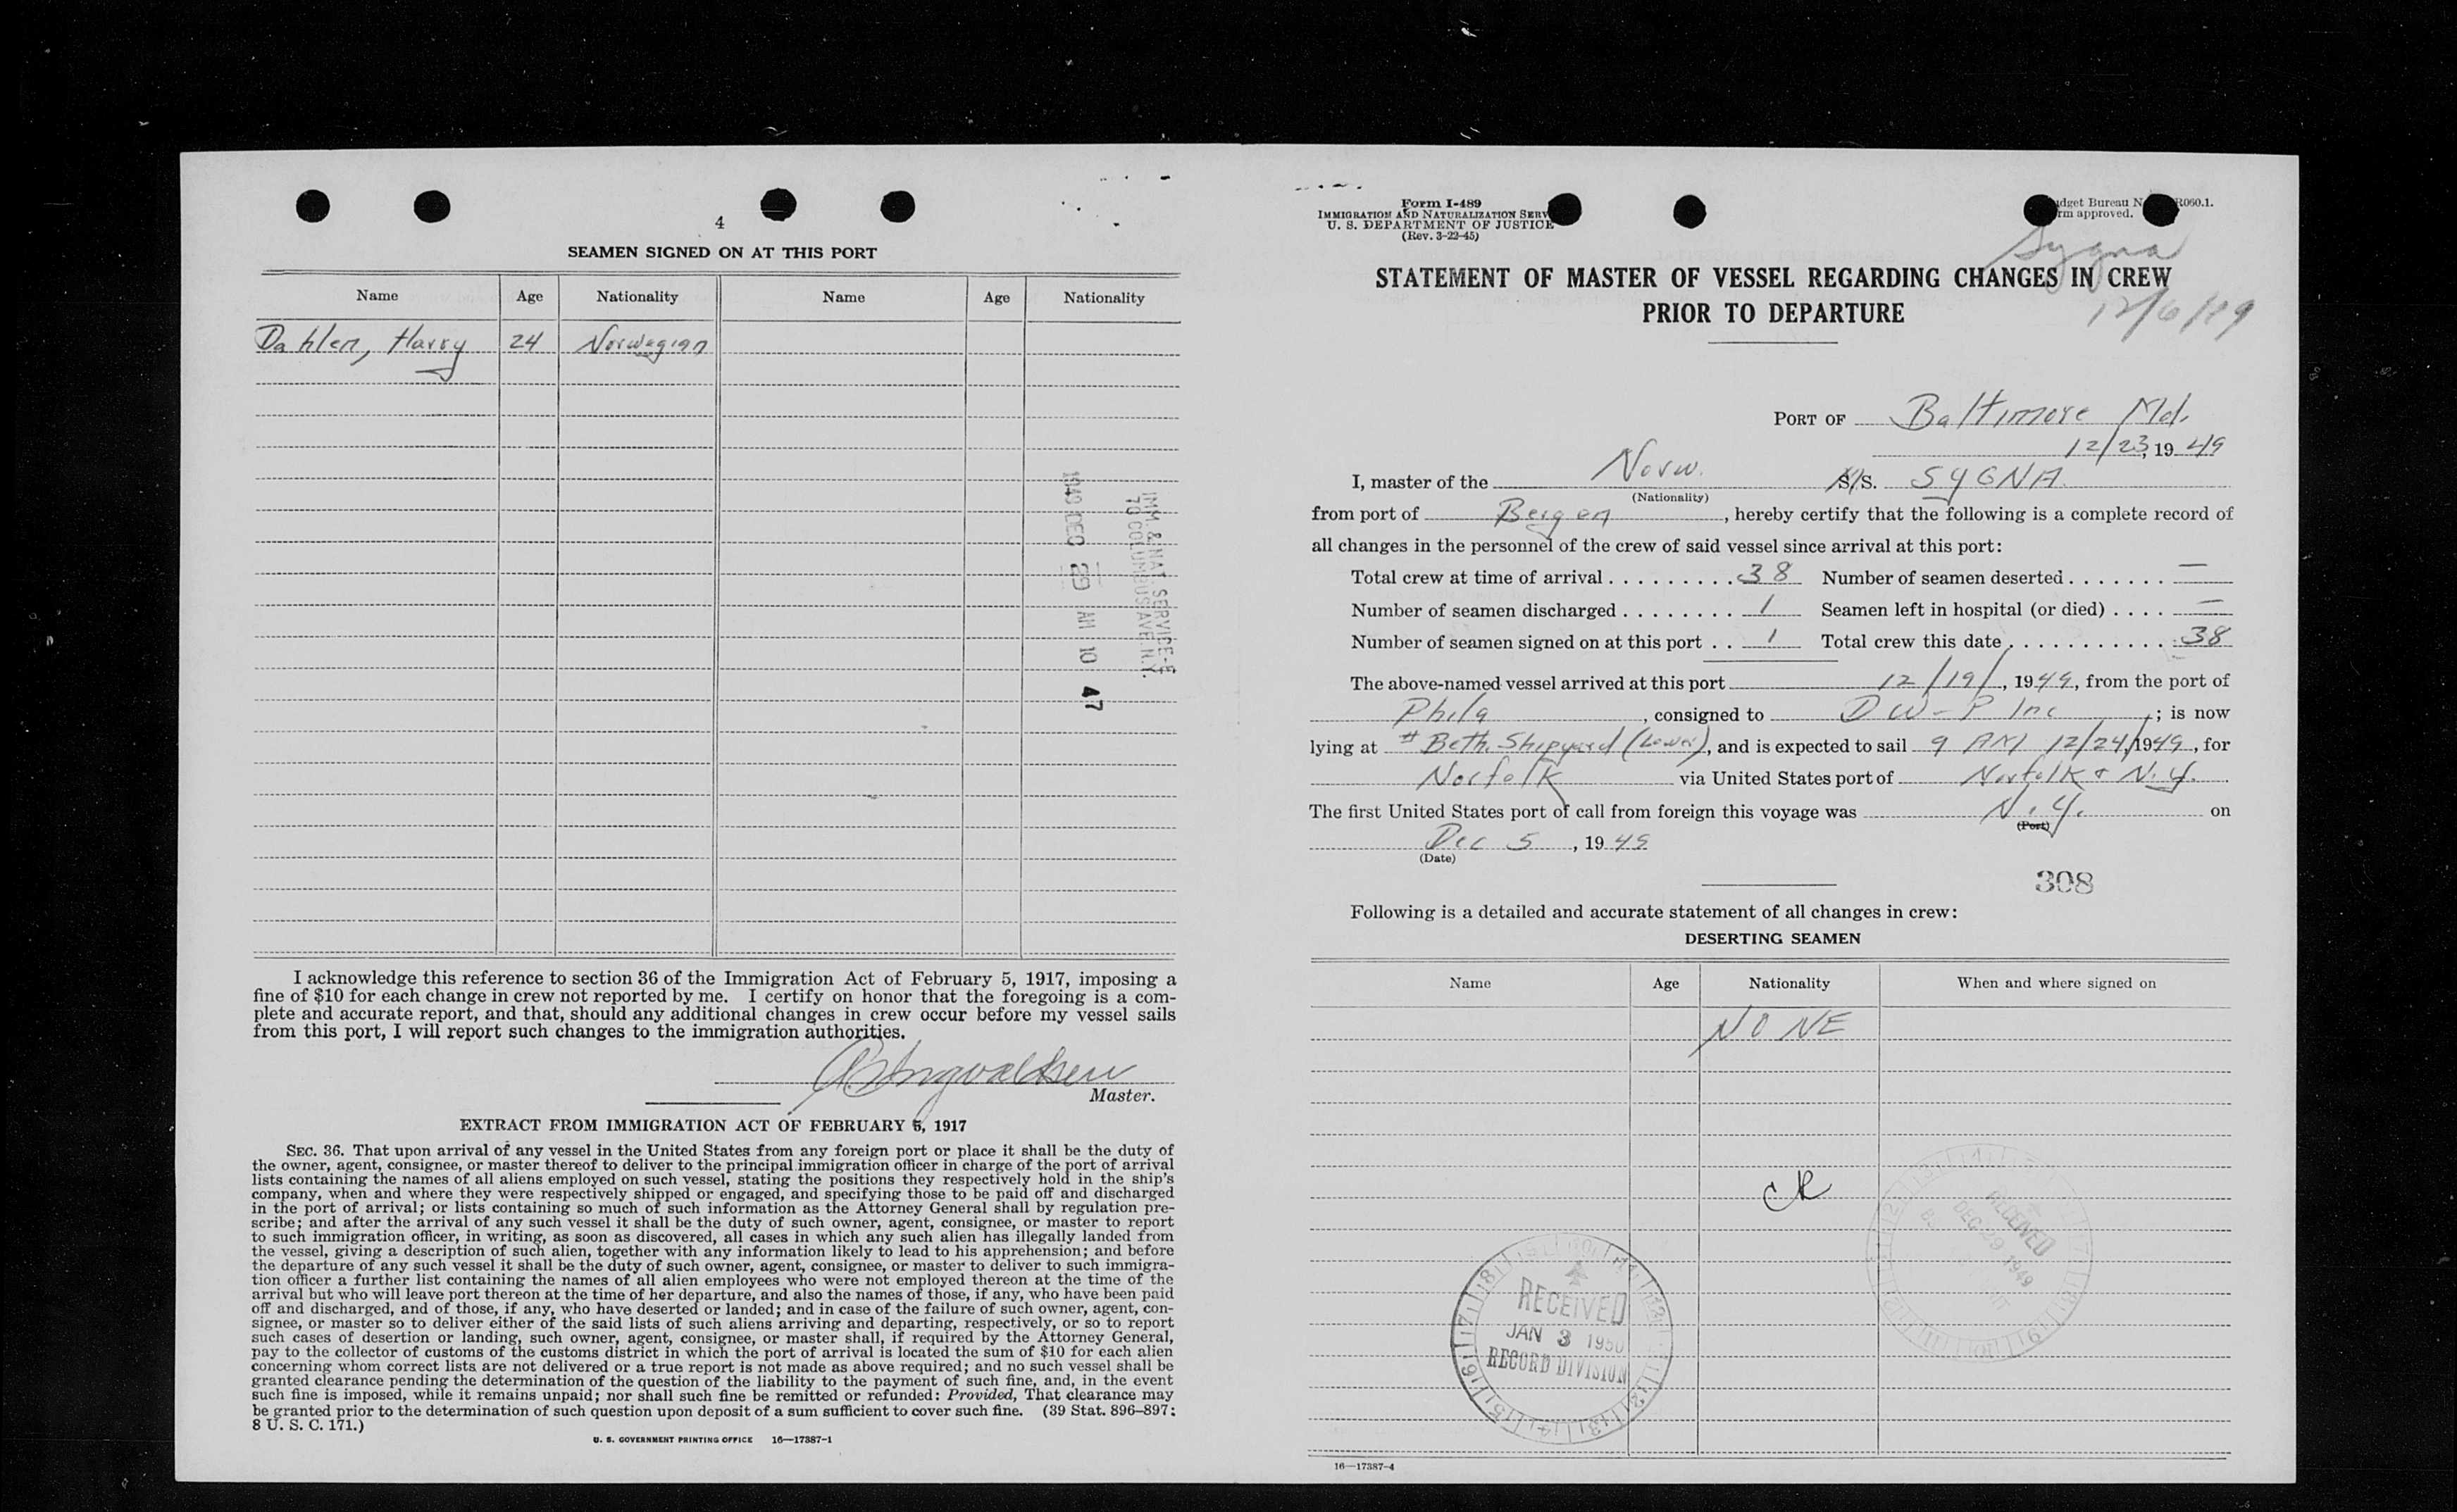 4
SEAMEN SIGNED ON AT THIS PORT
Name Age Nationality Name Age Nationality
Dahlen, Harry 24 Norwegian
IMM & NAT SERVICE-E
70 COLUMBUS AVE N.Y.
1949 DEC 29 AM 10 47
I acknowledge this reference to section 36 of the Immigration Act of February 5, 1917, imposing a
fine of $10 for each change in crew not reported by me. I certify on honor that the foregoing is a com-
plete and accurate report, and that, should any additional changes in crew occur before my vessel sails
from this port, I will report such changes to the immigration authorities.
Ingvaldsen
Master.
EXTRACT FROM IMMIGRATION ACT OF FEBRUARY 5, 1917
SEC. 36. That upon arrival of any vessel in the United States from any foreign port or place it shall be the duty of
the owner, agent, consignee, or master thereof to deliver to the principal immigration officer in charge of the port of arrival
lists containing the names of all aliens employed on such vessel, stating the positions they respectively hold in the ship's
company, when and where they were respectively shipped or engaged, and specifying those to be paid off and discharged
in the port of arrival; or lists containing so much of such information as the Attorney General shall by regulation pre-
scribe; and after the arrival of any such vessel it shall be the duty of such owner, agent, consignee, or master to report
to such immigration officer, in writing, as soon as discovered, all cases in which any such alien has illegally landed from
the vessel, giving a description of such alien, together with any information likely to lead to his apprehension; and before
the departure of any such vessel it shall be the duty of such owner, agent, consignee, or master to deliver to such immigra-
tion officer a further list containing the names of all alien employees who were not employed thereon at the time of the
arrival but who will leave port thereon at the time of her departure, and also the names of those, if any, who have been paid
off and discharged, and of those, if any, who have deserted or landed; and in case of the failure of such owner, agent, con-
signee, or master so to deliver either of the said lists of such aliens arriving and departing, respectively, or so to report
such cases of desertion or landing, such owner, agent, consignee, or master shall, if required by the Attorney General,
pay to the collector of customs of the customs district in which the port of arrival is located the sum of $10 for each alien
concerning whom correct lists are not delivered or a true report is not made as above required; and no such vessel shall be
granted clearance pending the determination of the question of the liability to the payment of such fine, and, in the event
such fine is imposed, while it remains unpaid; nor shall such fine be remitted or refunded: Provided, That clearance may
be granted prior to the determination of such question upon deposit of a sum sufficient to cover such fine. (39 Stat. 896–897;
8 U. S. C. 171.)
U. S. GOVERNMENT PRINTING OFFICE 16—17387-1
Form I-489
IMMIGRATION AND NATURALIZATION SERV
U. S. DEPARTMENT OF JUSTICE
(Rev. 3-22-45)
dget Bureau N R060.1.
rm approved.
Sygna
12/6/49
STATEMENT OF MASTER OF VESSEL REGARDING CHANGES IN CREW
PRIOR TO DEPARTURE
PORT OF Baltimore Md.
12/23, 19 49
I, master of the Norw. S/S. SYGNA
(Nationality)
from port of Bergen, hereby certify that the following is a complete record of
all changes in the personnel of the crew of said vessel since arrival at this port:
Total crew at time of arrival . . . . . . . . . 38 Number of seamen deserted . . . . . . . —
Number of seamen discharged . . . . . . . . 1 Seamen left in hospital (or died) . . . . —
Number of seamen signed on at this port . . 1 Total crew this date . . . . . . . . . . . 38
The above-named vessel arrived at this port 12/19/, 1949, from the port of
Phila, consigned to DW-P Inc; is now
lying at # Beth. Shipyard (Lower), and is expected to sail 9 AM 12/24/1949, for
Norfolk via United States port of Norfolk + N.Y.
The first United States port of call from foreign this voyage was N.Y. on
(Port)
Dec 5, 19 49
(Date)
308
Following is a detailed and accurate statement of all changes in crew:
DESERTING SEAMEN
Name Age Nationality When and where signed on
NONE
RECEIVED
DEC 29 1949
RECEIVED
JAN 3 1950
RECORD DIVISION
16—17387-4